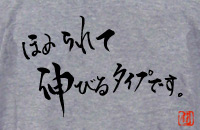 ほめられて
伸びるタイプです。